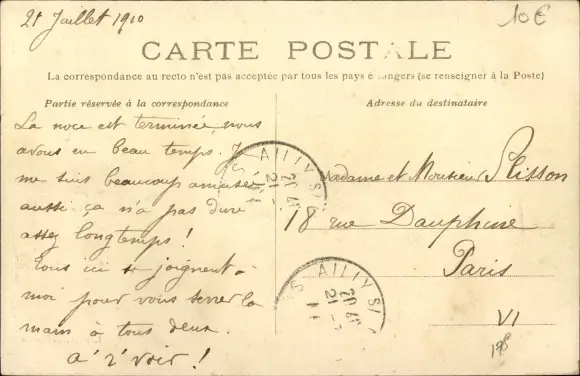 21 Juillet 1910
10€
CARTE POSTALE
La correspondance au recto n'est pas acceptée par tous les pays é angers (se renseigner à la Poste)
Partie réservée à la correspondance
Adresse du destinataire
La noce est terminée nous
avons eu beau temps. J
me suis beaucoup amusée
aussi ça n'a pas duré
assez longtemps !
Tous ici se joignent à
moi pour vous serrer la
main à tous deux.
à r'voir !
Madame et Monsieur Plisson
18 rue Dauphine
Paris
VI
AILLY S/
21
AILLY S/
21